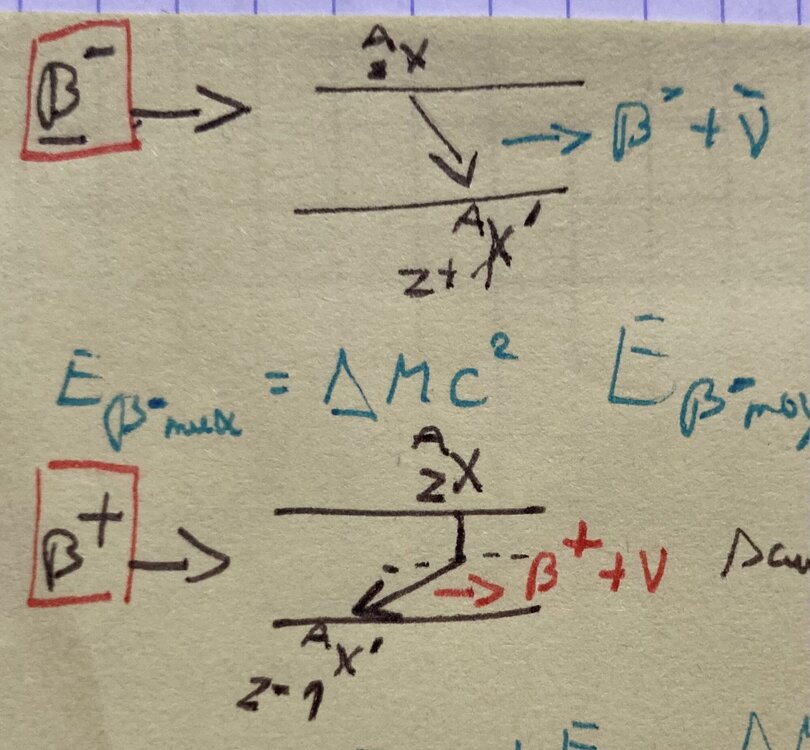 β⁻ → ᴬ_Z X
→ β⁻ + ν̄
ᴬ_Z+1 X'
E_β⁻max = ΔMC² E_β⁻moy
ᴬ_Z X
β⁺ → → β⁺ + ν
ᴬ_Z-1 X'